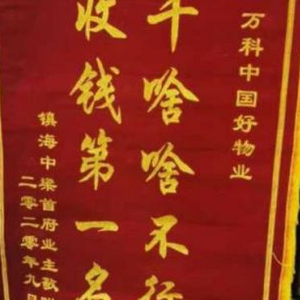 万科中国好物业
干啥啥不行
收钱第一名
镇海中梁首府业主敬赠
二零二零年九月